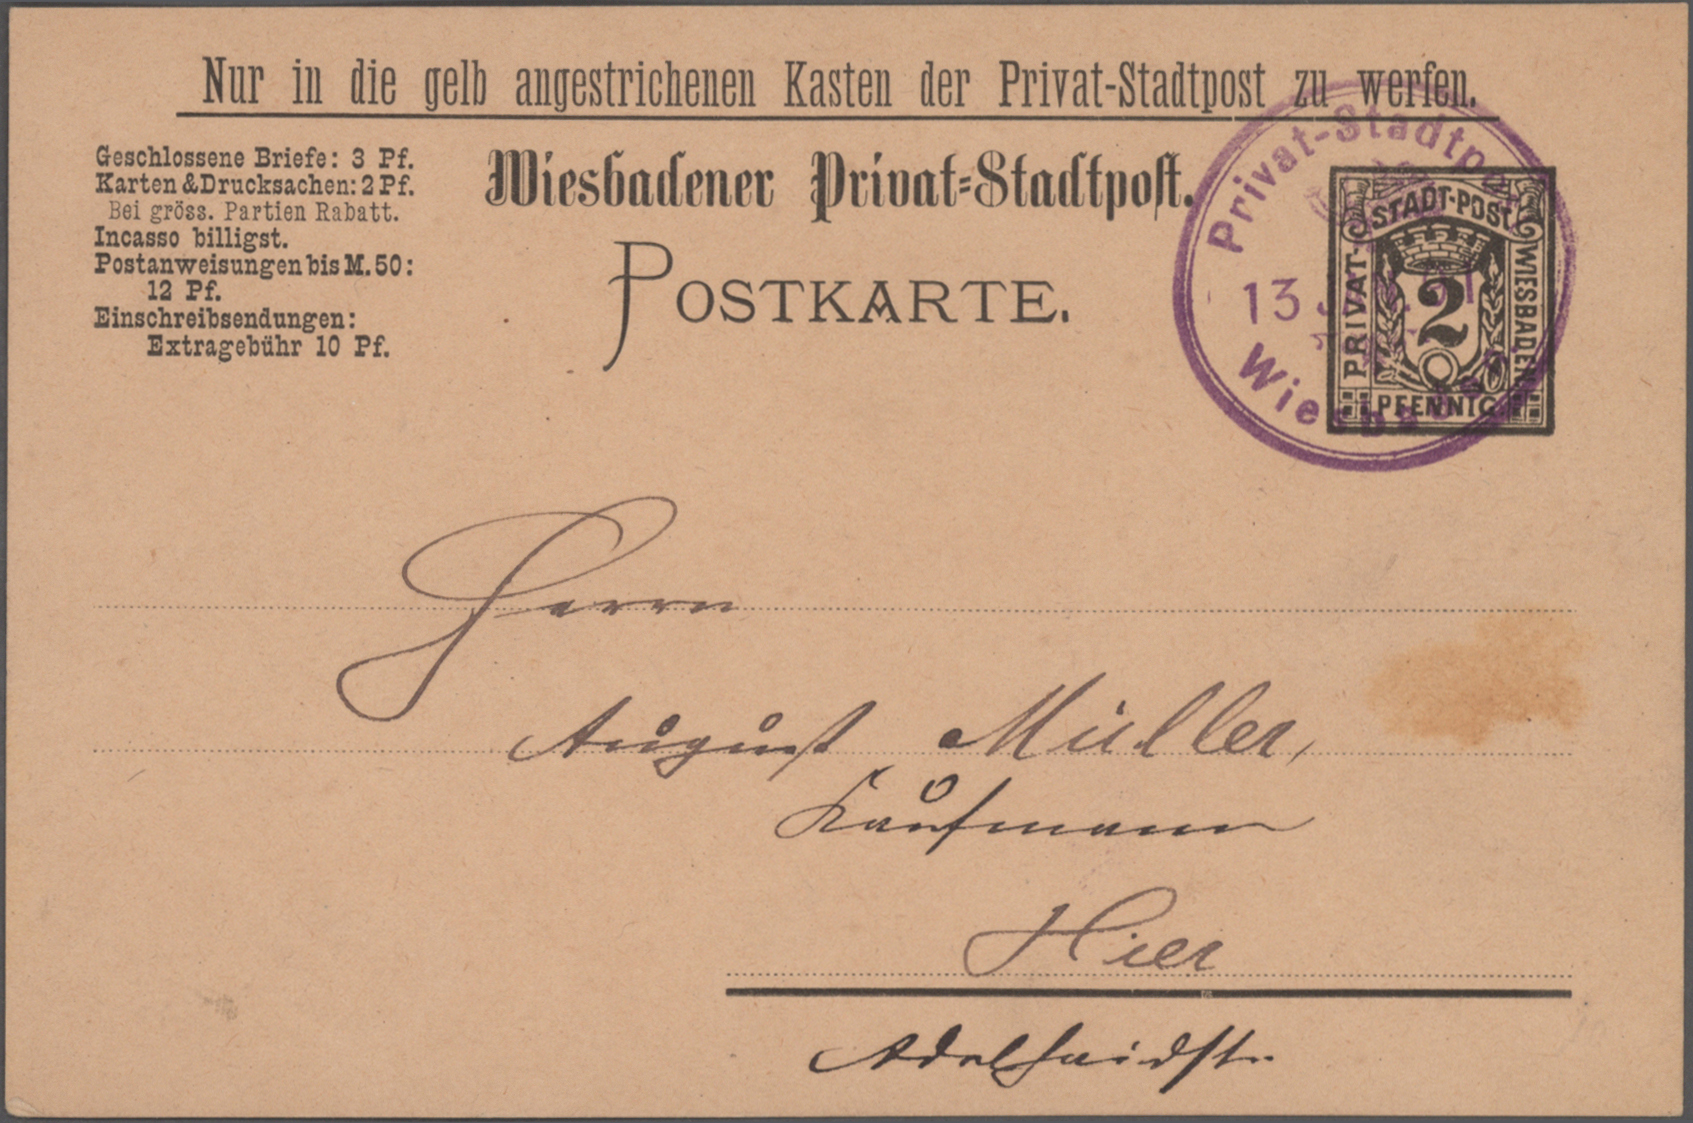 Nur in die gelb angestrichenen Kasten der Privat-Stadtpost zu werfen.
Geschlossene Briefe: 3 Pf.
Karten & Drucksachen: 2 Pf.
Bei gröss. Partien Rabatt.
Incasso billigst.
Postanweisungen bis M. 50:
12 Pf.
Einschreibsendungen:
Extragebühr 10 Pf.
Wiesbadener Privat-Stadtpost.
POSTKARTE.
Privat-Stadtpost
13
Wiesbaden
STADT-POST
PRIVAT-
WIESBADEN
2
PFENNIG
Herrn
August Müller,
Kaufmann
Hier
Adelhaidstr.